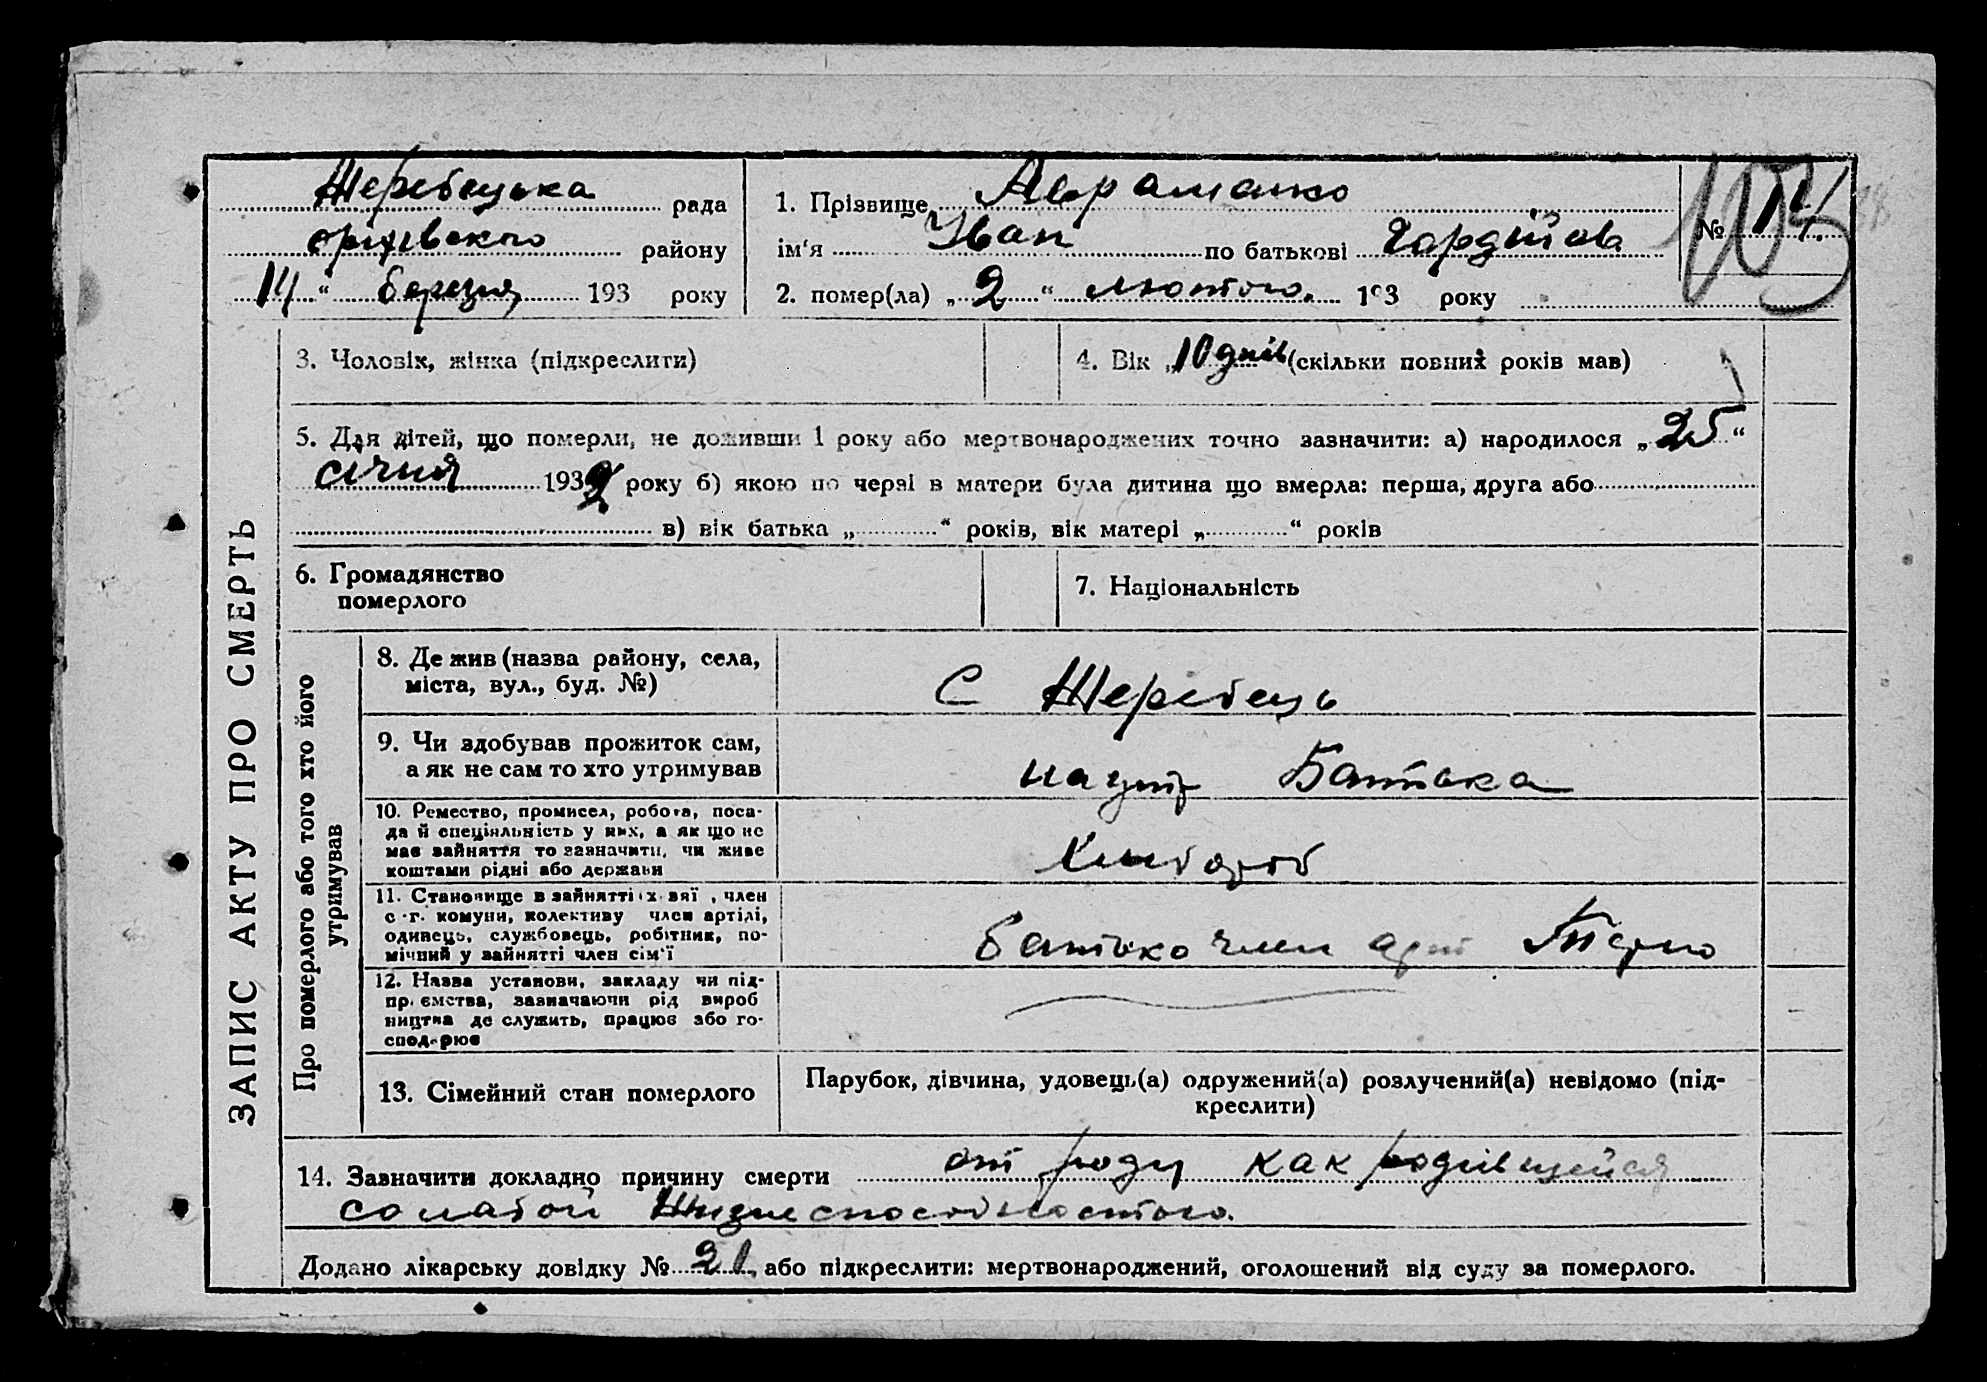 Жеребецька рада
оріхівского району
14 “ березня 193 року
1. Прізвище Авраменко
ім‘я Іван по батькові Гордійов
2. помер(ла) „ 2 “ лютого 193 року
№ 14
103
3. Чоловік, жінка (підкреслити)
4. Вік „ 10 днів (скільки повних років мав)
5. Для дітей, що померли, не доживши 1 року або мертвонароджених точно зазначити: а) народилося „ 25 “
січня 1932 року б) якою по черзі в матери була дитина що вмерла: перша, друга або
в) вік батька „ “ років, вік матері „ “ років
6. Громадянство
померлого
7. Національність
ЗАПИС АКТУ ПРО СМЕРТЬ
Про померлого або того хто його
утримував
8. Де жив (назва району, села,
міста, вул., буд. №)
С Жеребець
9. Чи здобував прожиток сам,
а як не сам то хто утримував
Батька
10. Ремество, промисел, робота, поса-
да й спеціяльність у них, а як що не
має зайняття то зазначити, чи живе
коштами рідні або держави
Хлибороб
11. Становище в зайнятті: хазяї , член
с.-г. комуни, колективу член артілі,
одинець, службовець, робітник, по-
мічний у зайнятті член сім‘ї
Батько член арт
12. Назва установи, закладу чи під-
приємства, зазначаючи рід вироб
ництва де служить, працює або го-
сподарює
13. Сімейний стан померлого
Парубок, дівчина, удовець(а) одружений(а) розлучений(а) невідомо (під-
креслити)
14. Зазначити докладно причину смерти от роду как родившейся
со слабой жизнеспособностью.
Додано лікарську довідку № 21, або підкреслити: мертвонароджений, оголошений від суду за померлого.